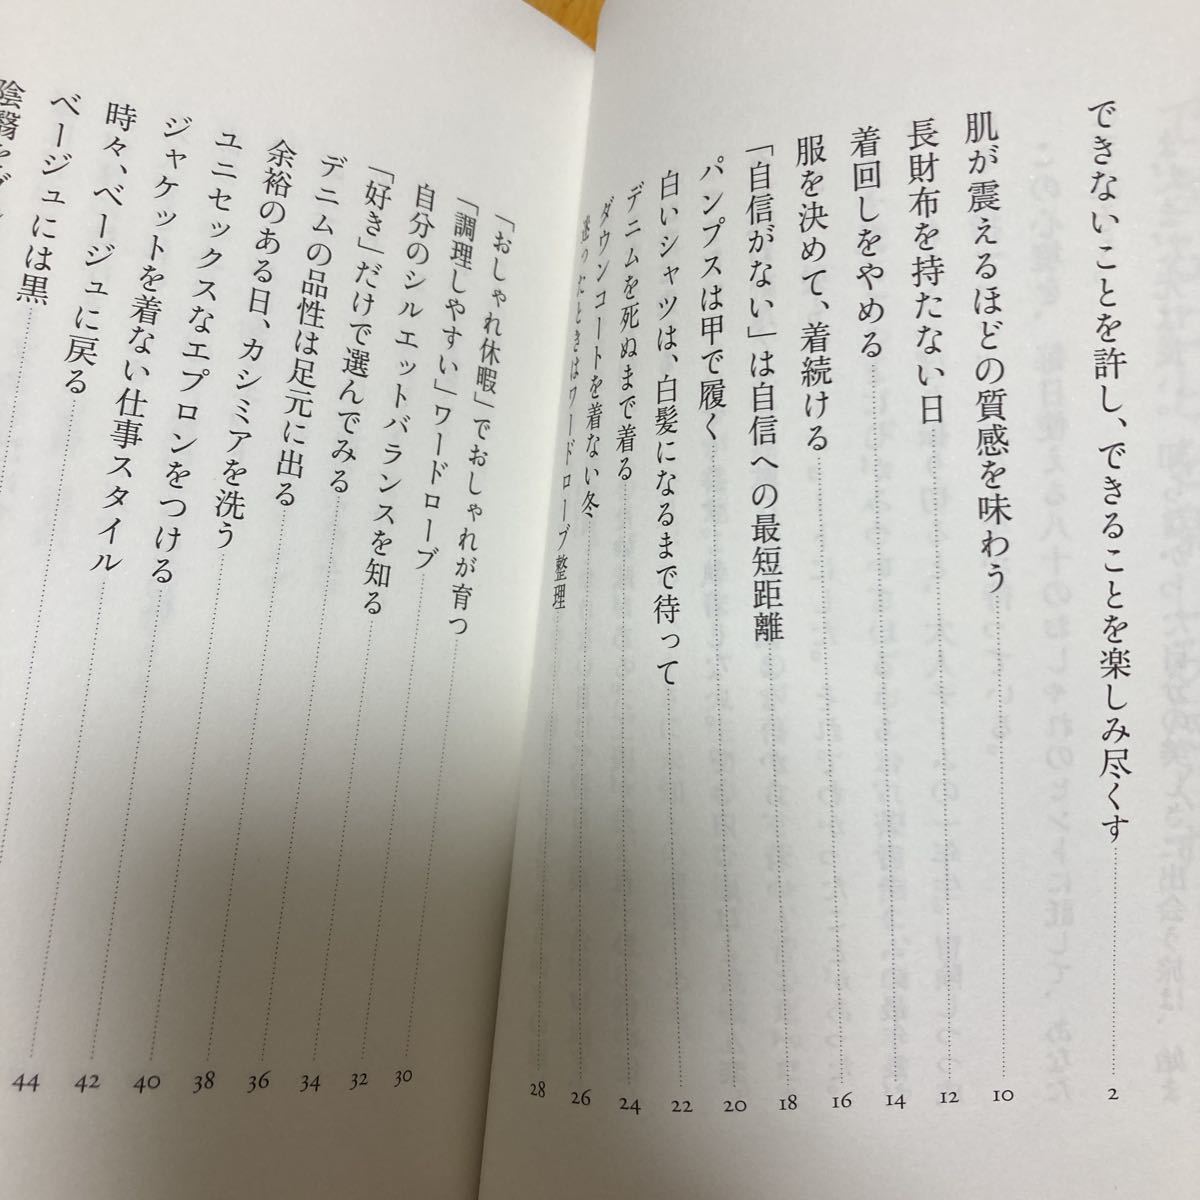 できないことを許し、できることを楽しみ尽くす 2
肌が震えるほどの質感を味わう 10
長財布を持たない日 12
着回しをやめる 14
服を決めて、着続ける 16
「自信がない」は自信への最短距離 18
パンプスは甲で履く 20
白いシャツは、白髪になるまで待って 22
デニムを死ぬまで着る 24
ダウンコートを着ない冬 26
迷ったときはワードローブ整理 28
「おしゃれ休暇」でおしゃれが育つ 30
「調理しやすい」ワードローブ 32
自分のシルエットバランスを知る 34
「好き」だけで選んでみる 36
デニムの品性は足元に出る 38
余裕のある日、カシミアを洗う 40
ユニセックスなエプロンをつける 42
ジャケットを着ない仕事スタイル 44
時々、ベージュに戻る
ベージュには黒
陰翳を